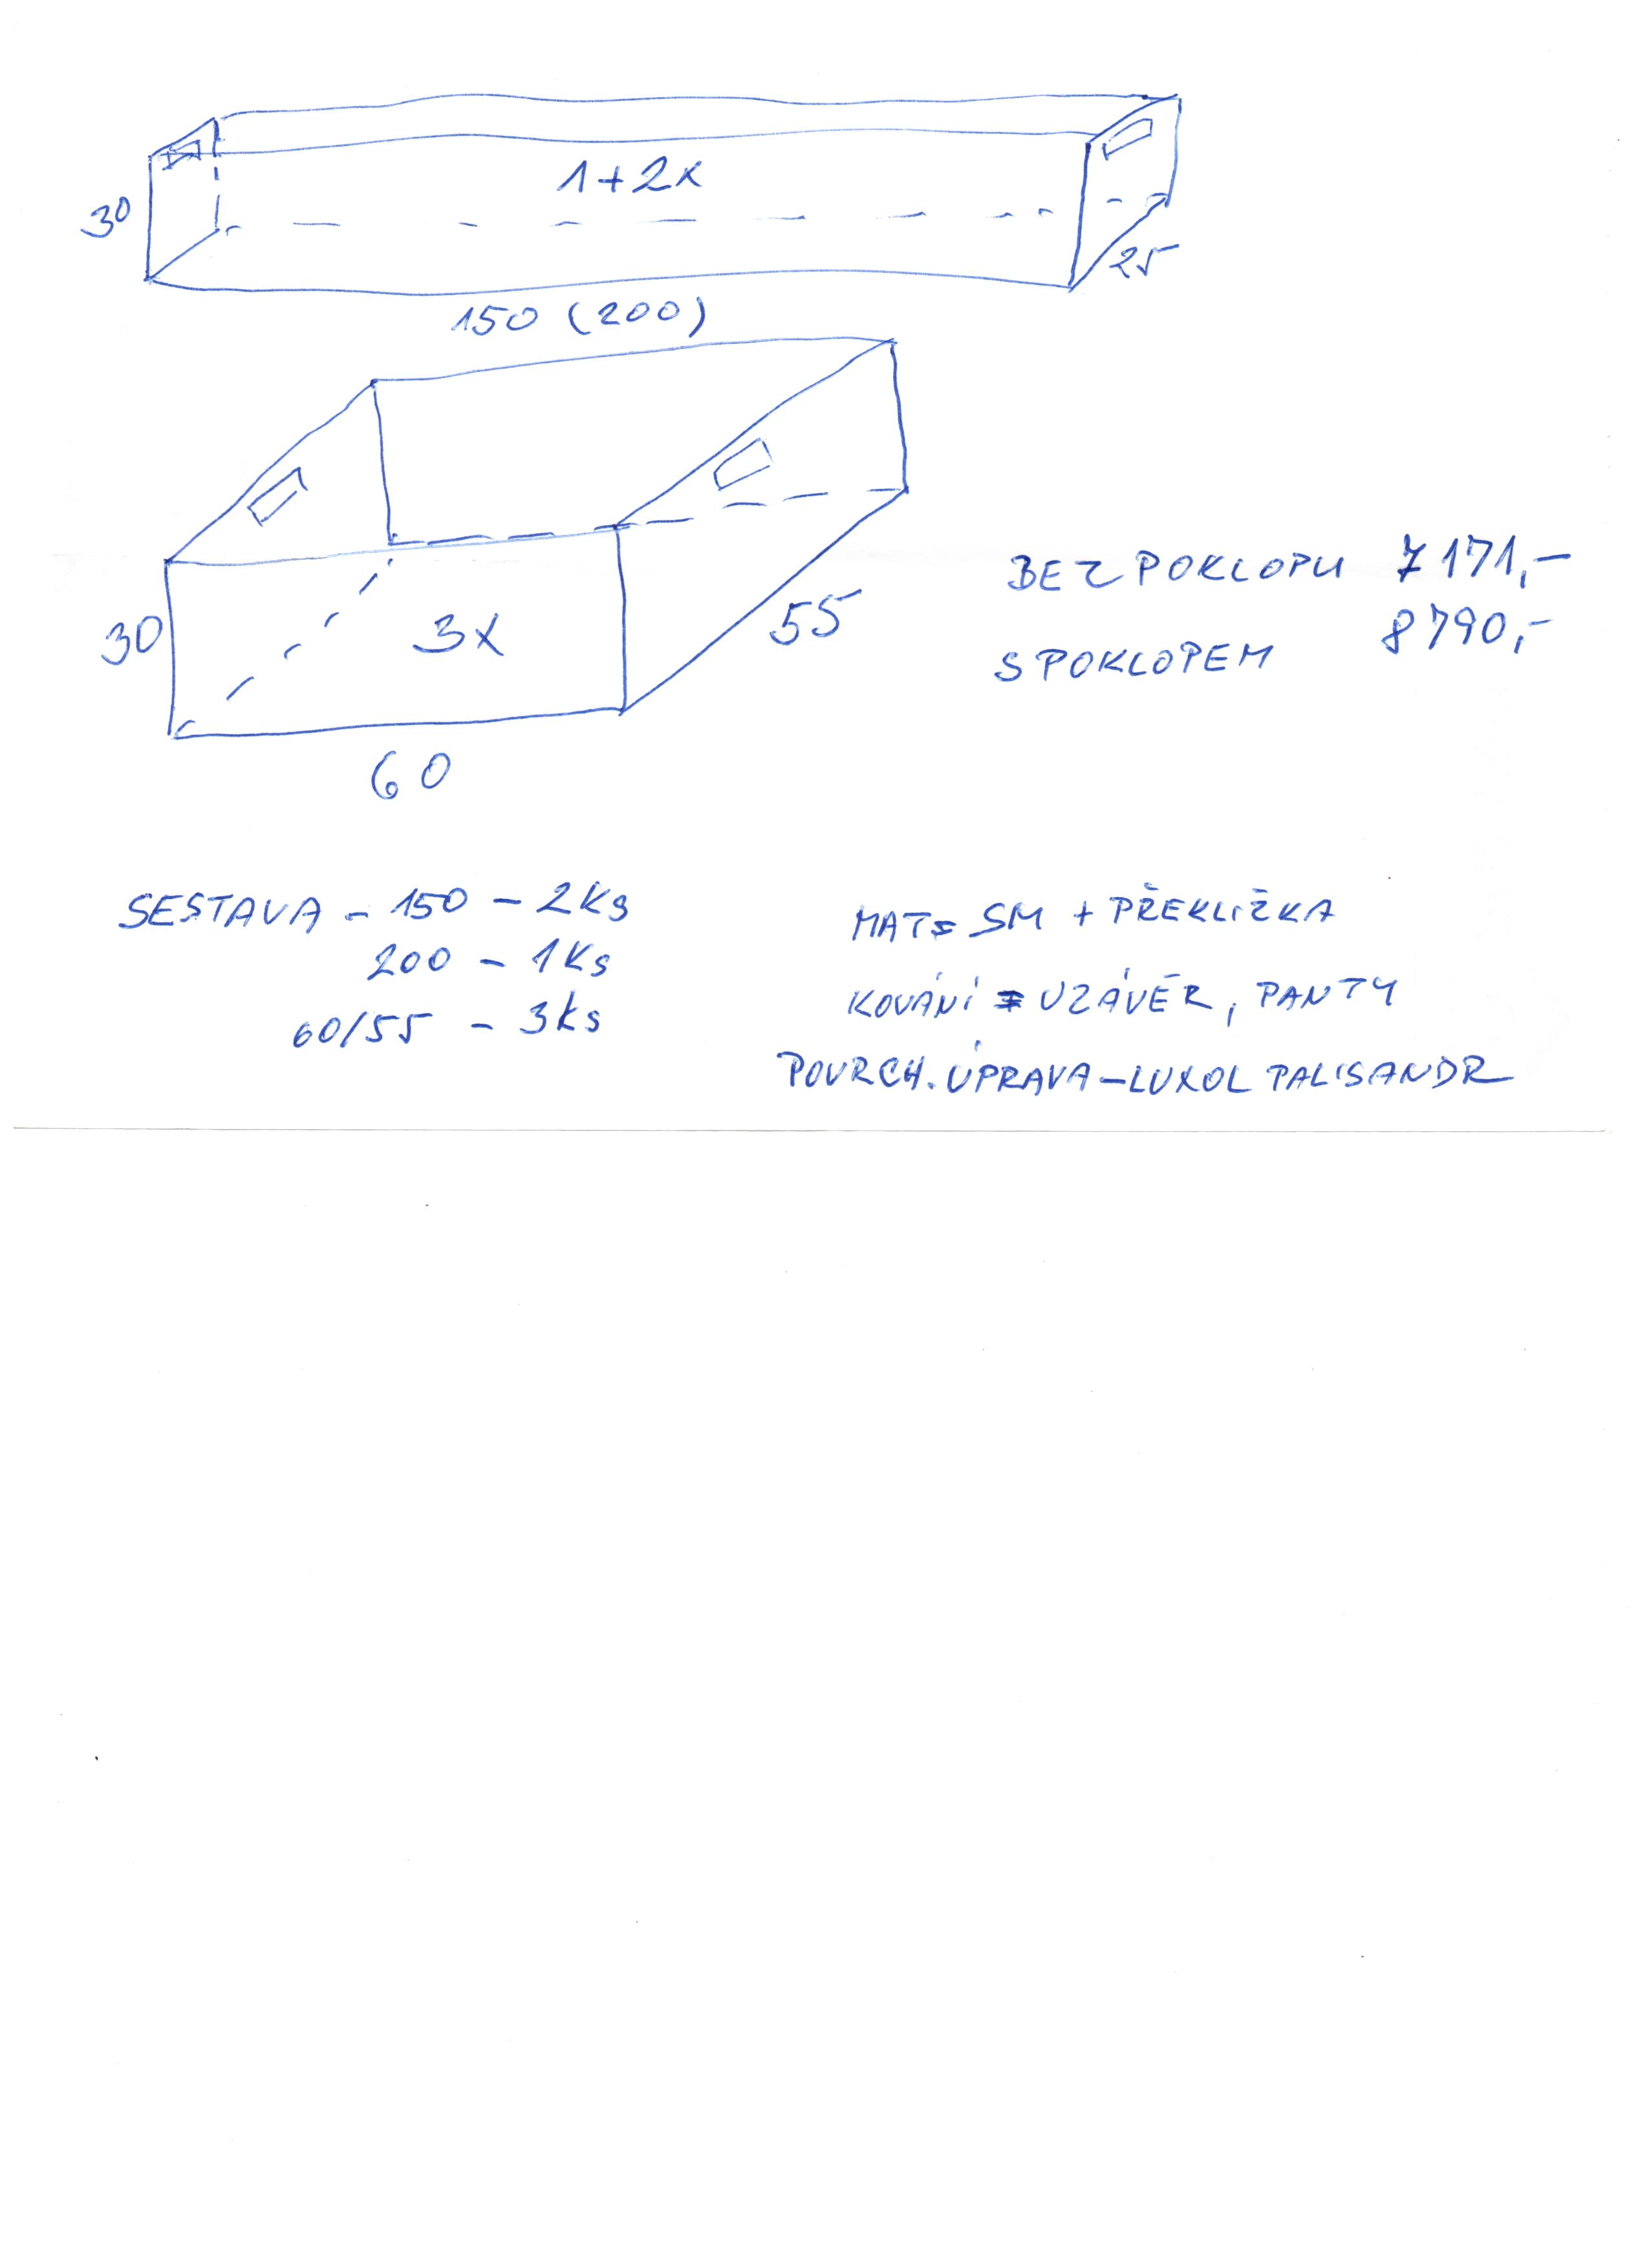 1+2x
30
25
150 (200)
30
3x
55
60
BEZ POKLOPU 7171,-
S POKLOPEM 8790,-
SESTAVA - 150 - 2Ks
200 - 1Ks
60/55 - 3ks
MAT= SM + PŘEKLIŽKA
KOVÁNÍ = UZÁVĚR, PANTY
POVRCH. ÚPRAVA - LUXOL PALISANDR